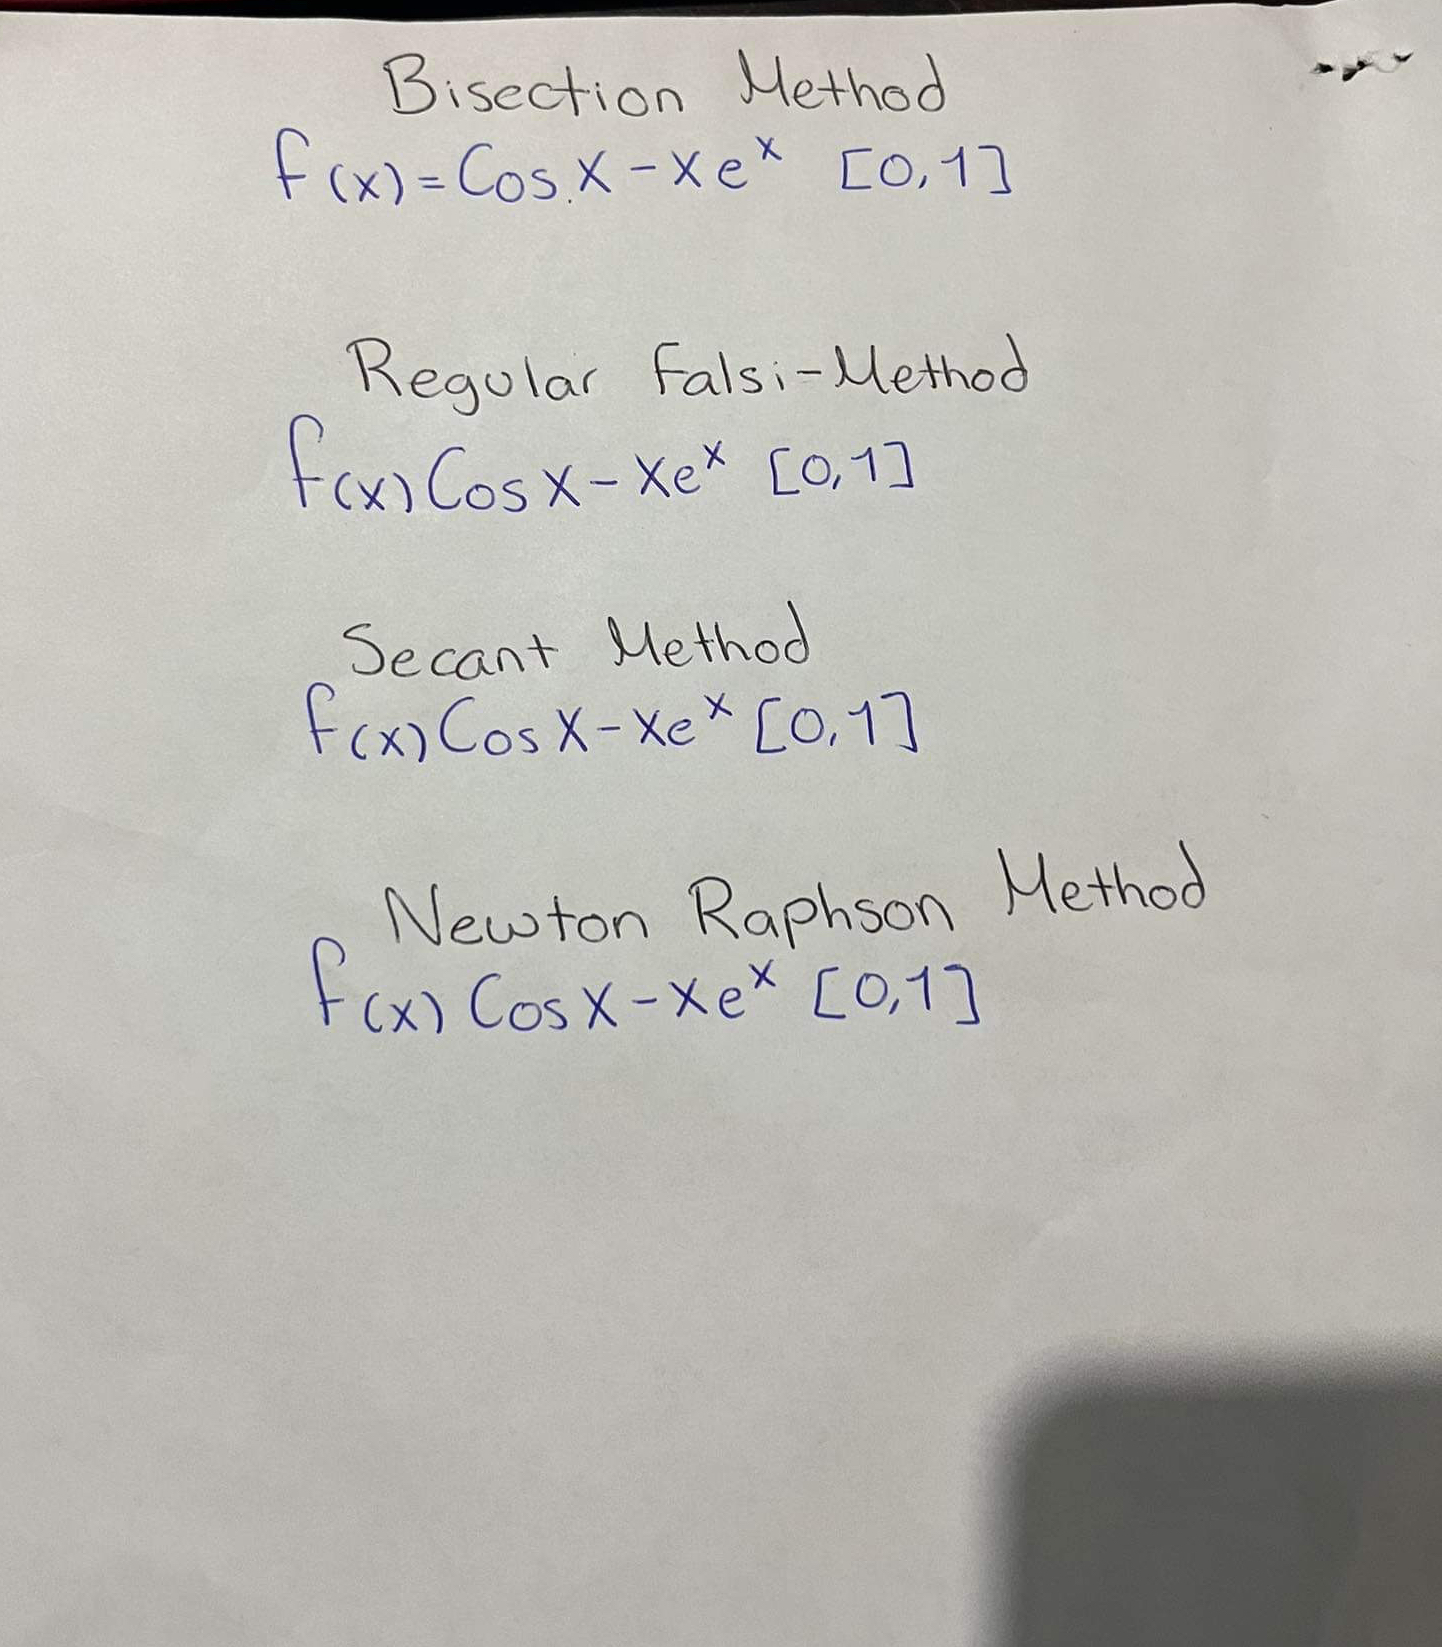 Bisection Method
f(x)=Cos.x-xeˣ [0,1]
Regular Falsi-Method
f(x) Cosx-xeˣ [0,1]
Secant Method
f(x) Cosx-xeˣ [0,1]
Newton Raphson Method
f(x) Cosx-xeˣ [0,1]